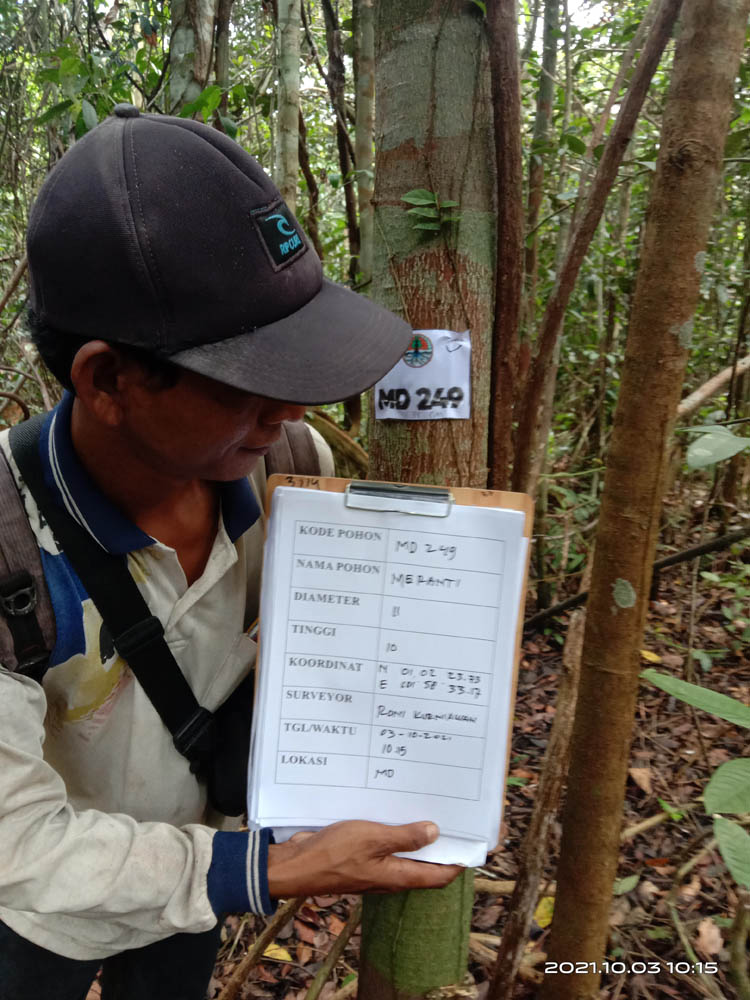 RIP CURL
MD 249
KODE POHON MD 249
NAMA POHON MERANTI
DIAMETER 11
TINGGI 10
KOORDINAT N 01, 02 23.73
E 101 58 33.17
SURVEYOR RONI KURNIAWAN
TGL/WAKTU 03-10-2021
10.15
LOKASI MD
2021.10.03 10:15